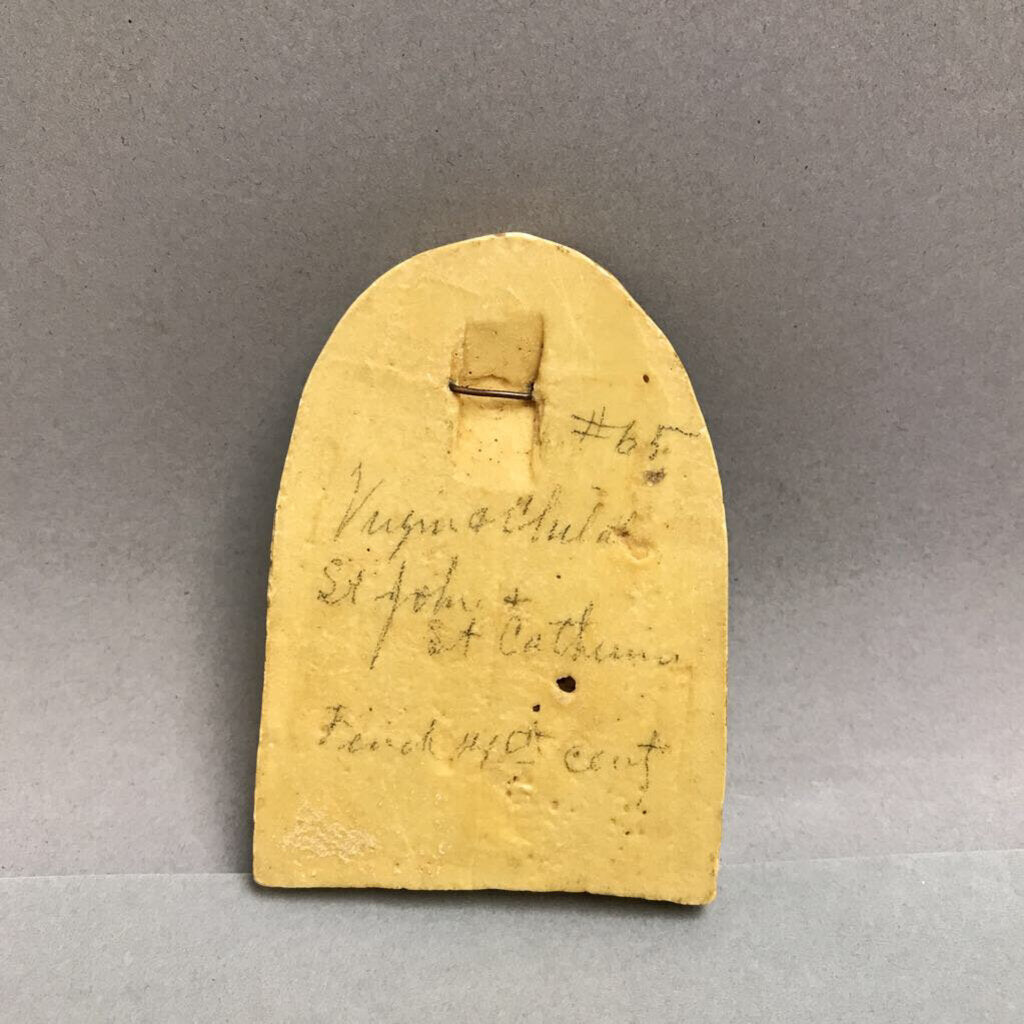 #65
Virgin & Child
St John +
St Catherine
cent